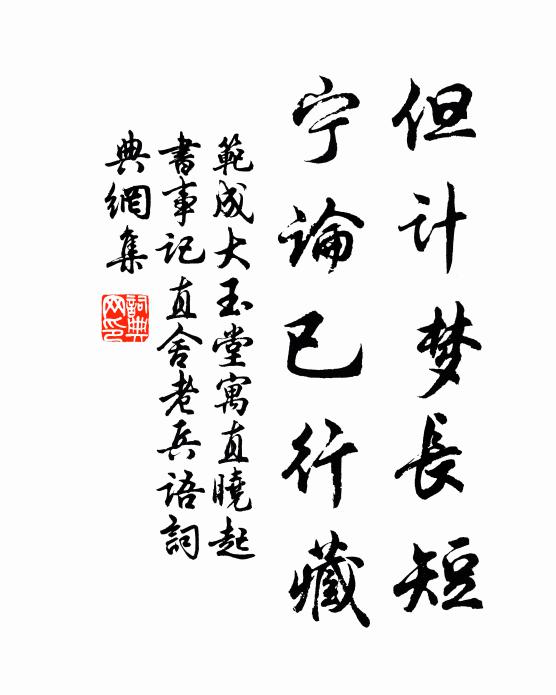 但计梦長短
宁論已行藏
範成大玉堂寓直曉起
書事記直舍老兵語詞
典網集
詞典
网印